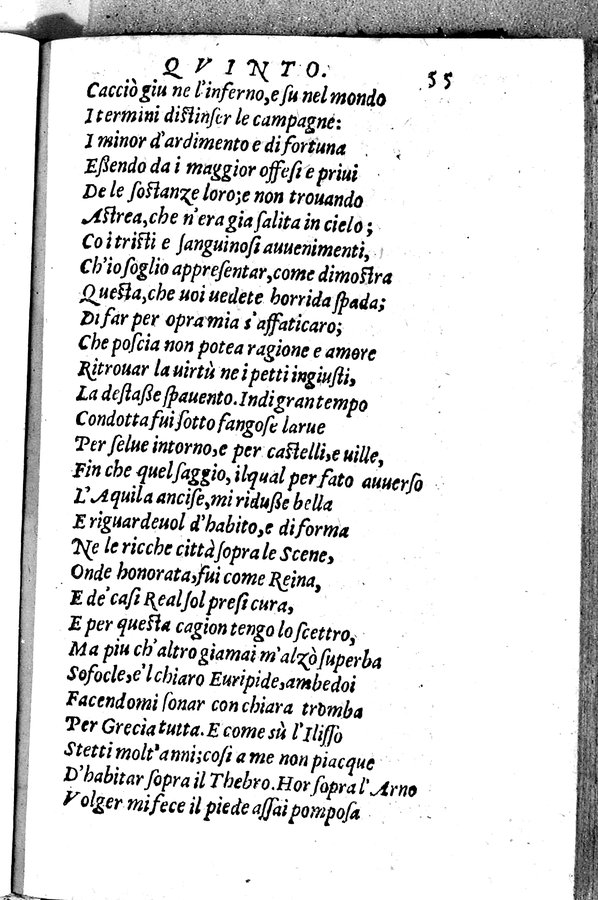 QVINTO. 55
Cacciò giu ne l'inferno, e su nel mondo
I termini distinser le campagne:
I minor d'ardimento e di fortuna
Eßendo da i maggior offesi e priui
De le sostanze loro; e non trouando
Astrea, che n'era gia salita in cielo;
Co i tristi e sanguinosi auuenimenti,
Ch'io soglio appresentar, come dimostra
Questa, che uoi uedete horrida spada;
Di far per opra mia s'affaticaro;
Che poscia non potea ragione e amore
Ritrouar la uirtù ne i petti ingiusti,
La destaße spauento. Indi gran tempo
Condotta fui sotto fangose larue
Per selue intorno, e per castelli, e uille,
Fin che quel saggio, ilqual per fato auuerso
L'Aquila ancise, mi riduße bella
E riguardeuol d'habito, e di forma
Ne le ricche città sopra le Scene,
Onde honorata, fui come Reina,
E de' casi Real sol presi cura,
E per questa cagion tengo lo scettro,
Ma piu ch'altro giamai m'alzò superba
Sofocle, e'l chiaro Euripide, ambedoi
Facendomi sonar con chiara tromba
Per Grecia tutta. E come sù l'Ilisso
Stetti molt'anni; cosi a me non piacque
D'habitar sopra il Thebro. Hor sopra l'Arno
Volger mi fece il piede assai pomposa